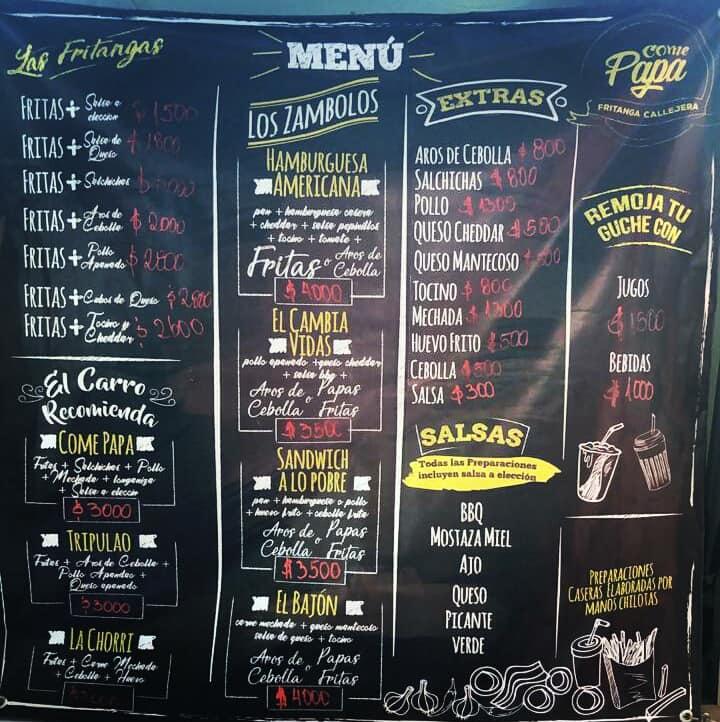 Las Fritangas
FRITAS + Salsa a elección $1500
FRITAS + Salsa de Queso
FRITAS + Salchichas
FRITAS + Aros de Cebolla $2000
FRITAS + Pollo Apanado $2800
FRITAS + Cubos de Queso
FRITAS + Tocino y Cheddar $2600
El Carro
Recomienda
COME PAPA
Fritas + Salchichas + Pollo
+ Mechada + longaniza
+ Salsa a elección
$3000
TRIPULAO
Fritas + Aros de Cebolla +
Pollo Apanado +
Queso apanado
$3000
LA CHORRI
Fritas + Carne Mechada
+ Cebolla + Huevo
MENÚ
LOS ZAMBOLOS
HAMBURGUESA
AMERICANA
pan + hamburguesa casera
+ cheddar + salsa pepinillos
+ tocino + tomate +
Fritas o Aros de Cebolla
$4000
EL CAMBIA
VIDAS
pollo apanado + queso cheddar
+ salsa bbq +
Aros de Cebolla o Papas Fritas
$3500
SANDWICH
A LO POBRE
pan + hamburguesa o pollo
+ huevo frito + cebolla frita
Aros de Cebolla o Papas Fritas
$3500
EL BAJÓN
carne mechada + queso mantecoso
salsa de queso + tocino
Aros de Cebolla o Papas Fritas
$4000
EXTRAS
AROS DE CEBOLLA $800
SALCHICHAS $800
POLLO $1300
QUESO CHEDDAR $500
QUESO MANTECOSO
TOCINO $800
MECHADA $1300
HUEVO FRITO $500
CEBOLLA $500
SALSA $300
SALSAS
Todas las Preparaciones
incluyen salsa a elección
BBQ
MOSTAZA MIEL
AJO
QUESO
PICANTE
VERDE
COME
Papa
FRITANGA CALLEJERA
REMOJA TU
GUCHE CON
JUGOS
$1500
BEBIDAS
$1000
PREPARACIONES
CASERAS ELABORADAS POR
MANOS CHILOTAS